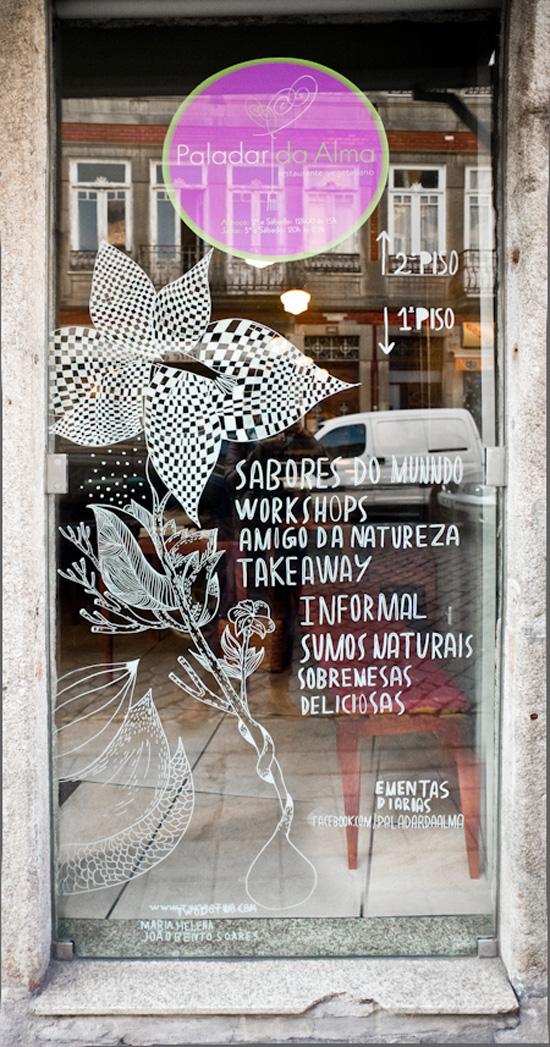 Paladar da Alma
restaurante vegetariano
Almoço: 2ª a Sábado: 12h00 às 15h
Jantar: 5ª a Sábado: 20h às
↑ 2º PISO
↓ 1º PISO
SABORES DO MUNNDO
WORKSHOPS
AMIGO DA NATUREZA
TAKEAWAY
INFORMAL
SUMOS NATURAIS
SOBREMESAS
DELICIOSAS
EMENTAS
DIARIAS
FACEBOOK.COM/PALADARDAALMA
MARIA HELENA
JOÃO BENTO SOARES